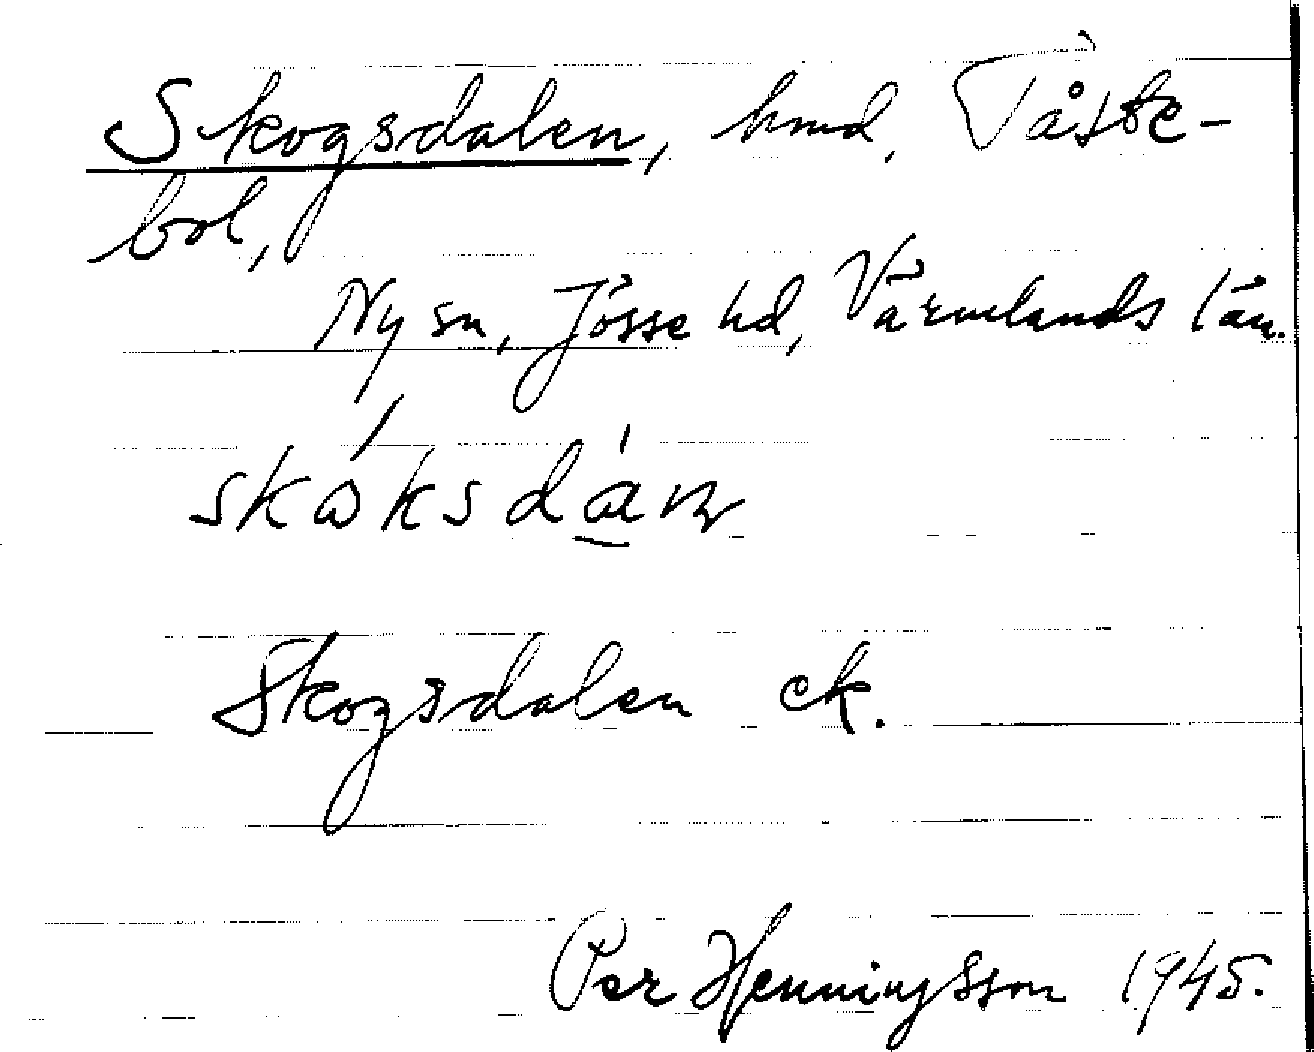 Skogsdalen, hmd, Tåste-
bol,
Ny sn, Jösse hd, Värmlands län.
Skogsdalen ek.
Per Henningsson 1945.